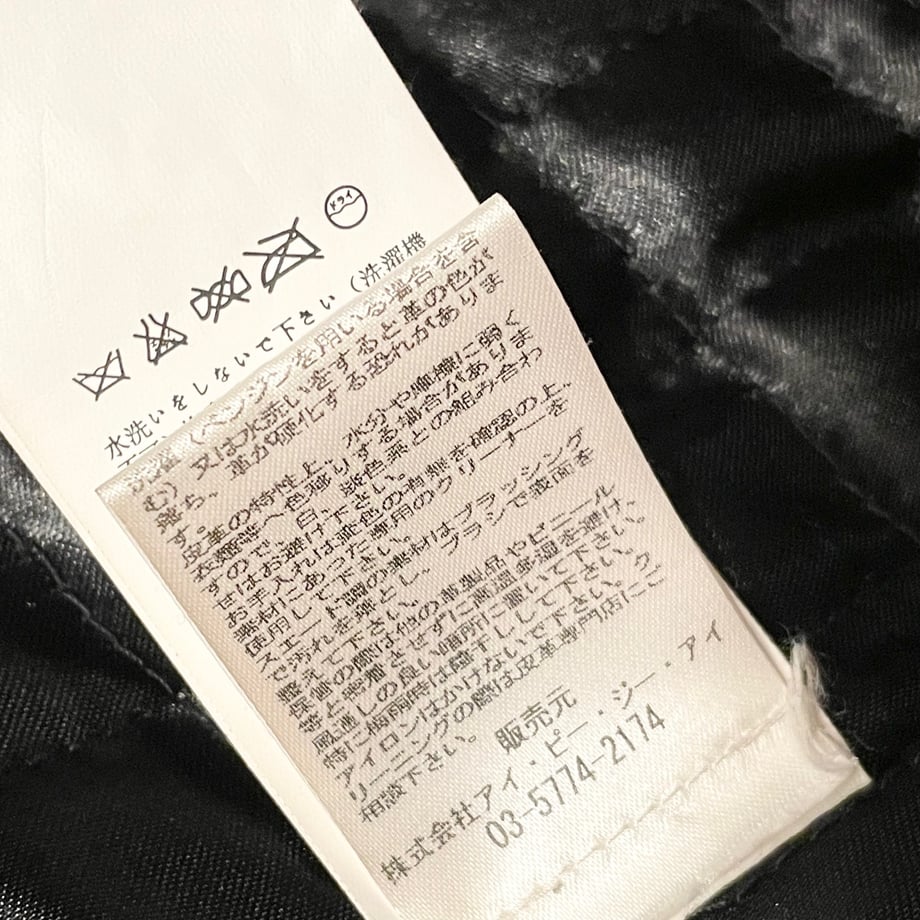 ドライ
水洗いをしないで下さい（洗濯機
（ベンジンを用いる場合を含
む）又は水洗いをすると革の色が
落ち、革が硬化する恐れがありま
す。
皮革の特性上、水分や摩擦に弱く
衣類等へ色移りする場合がありま
すので、白、淡色系との組み合わ
せはお避け下さい。
お手入れは革色の内容を確認の上、
素材にあった専用のクリーナーを
使用して下さい。
スエード調の素材はブラッシング
で汚れを落とし、ブラシで表面を
整えて下さい。
保管の際は他の革製品やビニール
等と密着させずに高温多湿を避け、
風通しの良い場所に置いて下さい。
特に梅雨時は陰干しして下さい。
アイロンはかけないで下さい。ク
リーニングの際は皮革専門店にご
相談下さい。
販売元
株式会社アイ・ピー・ジー・アイ
03-5774-2174